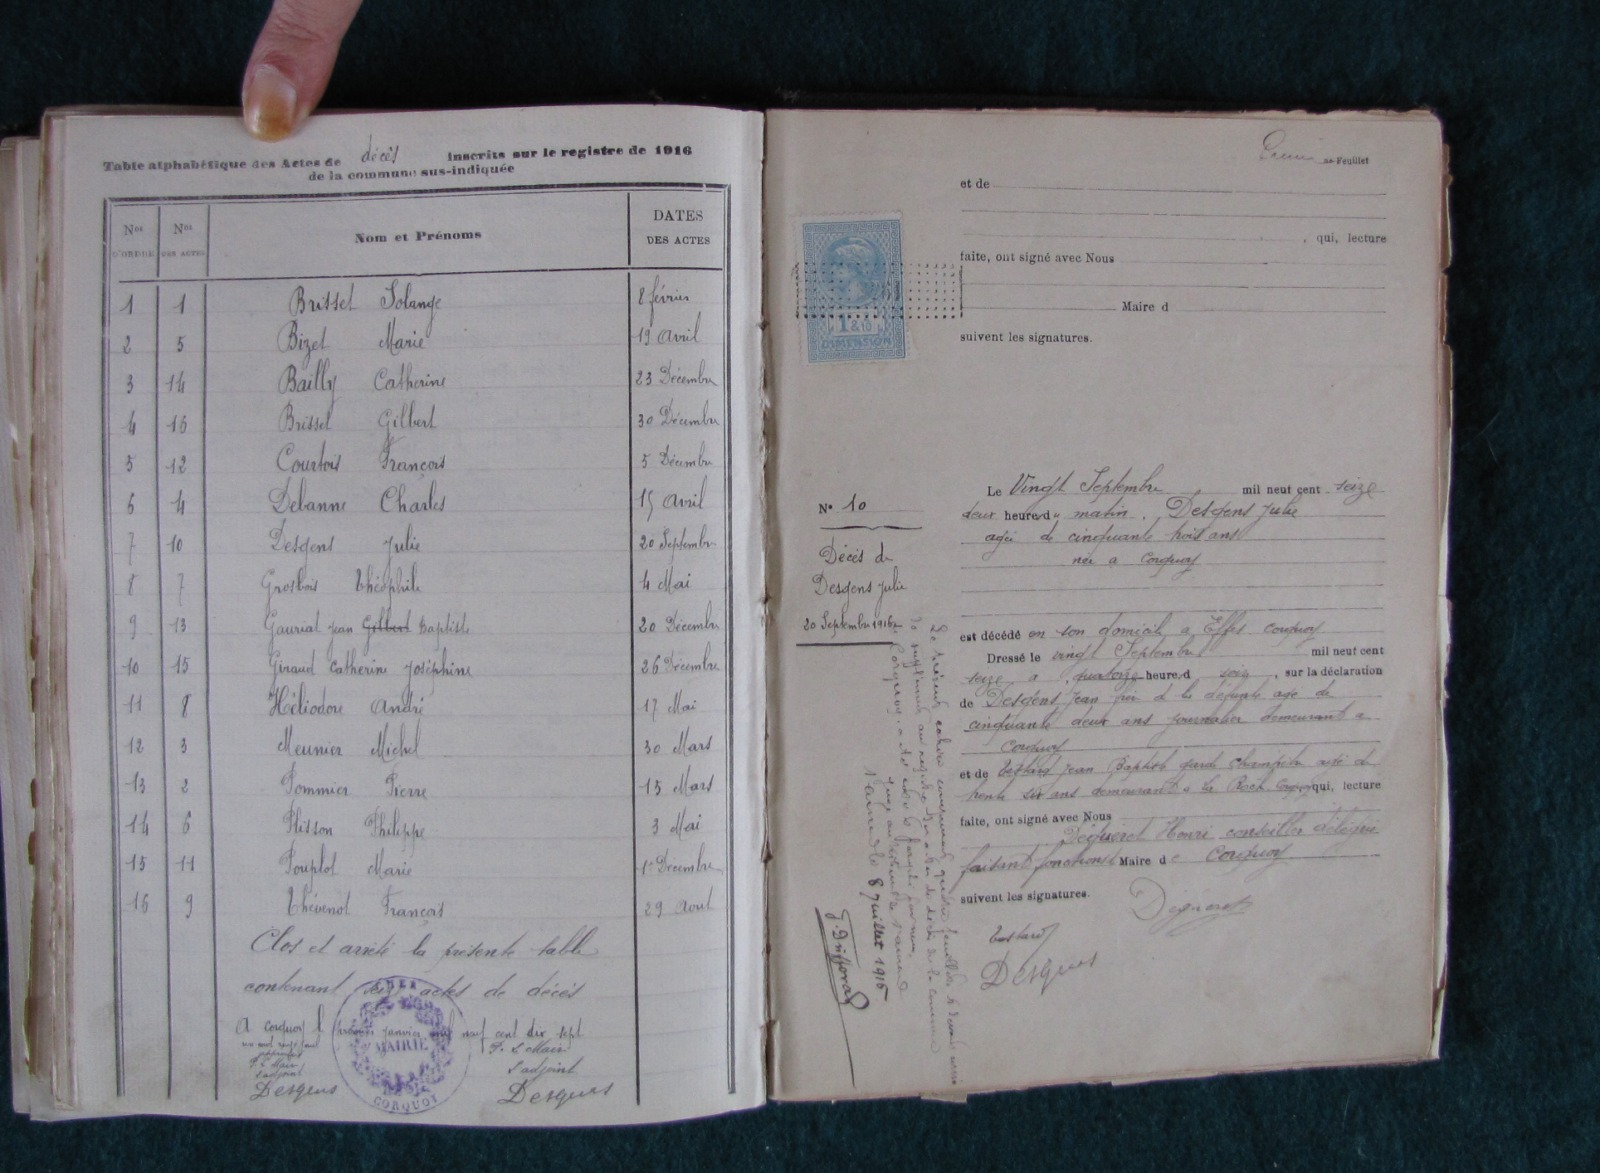 Table alphabétique des Actes de décès inscrits sur le registre de 1916
de la commune sus-indiquée
Nos D'ORDRE
Nos DES ACTES
Nom et Prénoms
DATES DES ACTES
1 1 Brisset Solange 8 février
2 5 Bizet Marie 19 Avril
3 14 Bailly Catherine 23 Décembre
4 16 Brisset Gilbert 30 Décembre
5 12 Courtois François 5 Décembre
6 4 Debanne Charles 15 Avril
7 10 Desgens Julie 20 Septembre
8 7 Grosbois Théophile 4 Mai
9 13 Gauriat Jean Gilbert Baptiste 20 Décembre
10 15 Giraud Catherine Joséphine 26 Décembre
11 8 Héliodore André 17 Mai
12 3 Meunier Michel 30 Mars
13 2 Pommier Pierre 15 Mars
14 6 Plisson Philippe 3 Mai
15 11 Pouplot Marie 1er Décembre
16 9 Thévenot François 29 Aout
Clos et arrêté la présente table
contenant seize actes de décès
A Corquoy le premier janvier mil neuf cent dix sept
P. le Maire
l'adjoint
Desgens
P. le Maire
l'adjoint
Desgens
MAIRIE
CORQUOY
me Feuillet
et de
, qui, lecture
faite, ont signé avec Nous
Maire d
suivent les signatures.
1 & 10
DIMENSION
N° 10
Décès de
Desgens Julie
20 Septembre 1916
Le Vingt Septembre mil neuf cent seize
deux heures du matin, Desgens Julie
agée de cinquante trois ans
née a Corquoy
est décédé en son domicile a Effes Corquoy
Dressé le vingt Septembre mil neuf cent
seize a quatorze heure d soir, sur la déclaration
de Desgens Jean de la défunte agé de
cinquante deux ans journalier demeurant a
Corquoy
et de Testard Jean Baptiste garde champêtre agé de
trente six ans demeurant a la Roche Corquoy qui, lecture
faite, ont signé avec Nous
Déqueret Henri conseiller délégué
faisant fonctions Maire de Corquoy
suivent les signatures.
Déqueret
Testard
Desgens
8 Juillet 1916